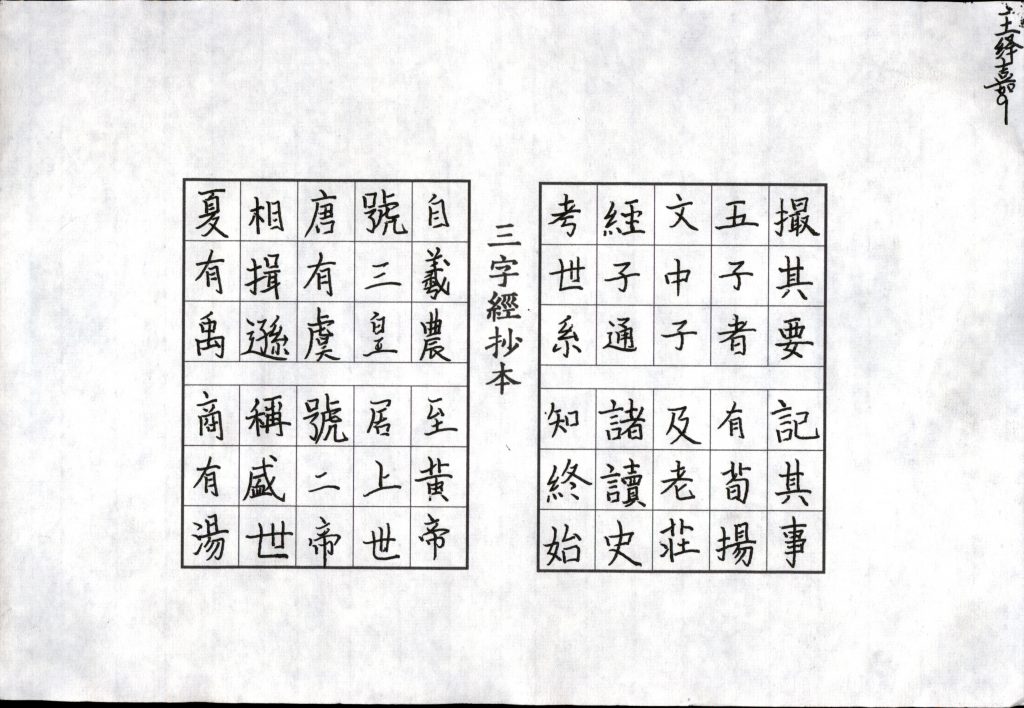 撮其要
記其事
五子者
有荀揚
文中子
及老莊
經子通
諸讀史
考世系
知終始
三字經抄本
自羲農
至黃帝
號三皇
居上世
唐有虞
號二帝
相揖遜
稱盛世
夏有禹
商有湯
王绎嘉